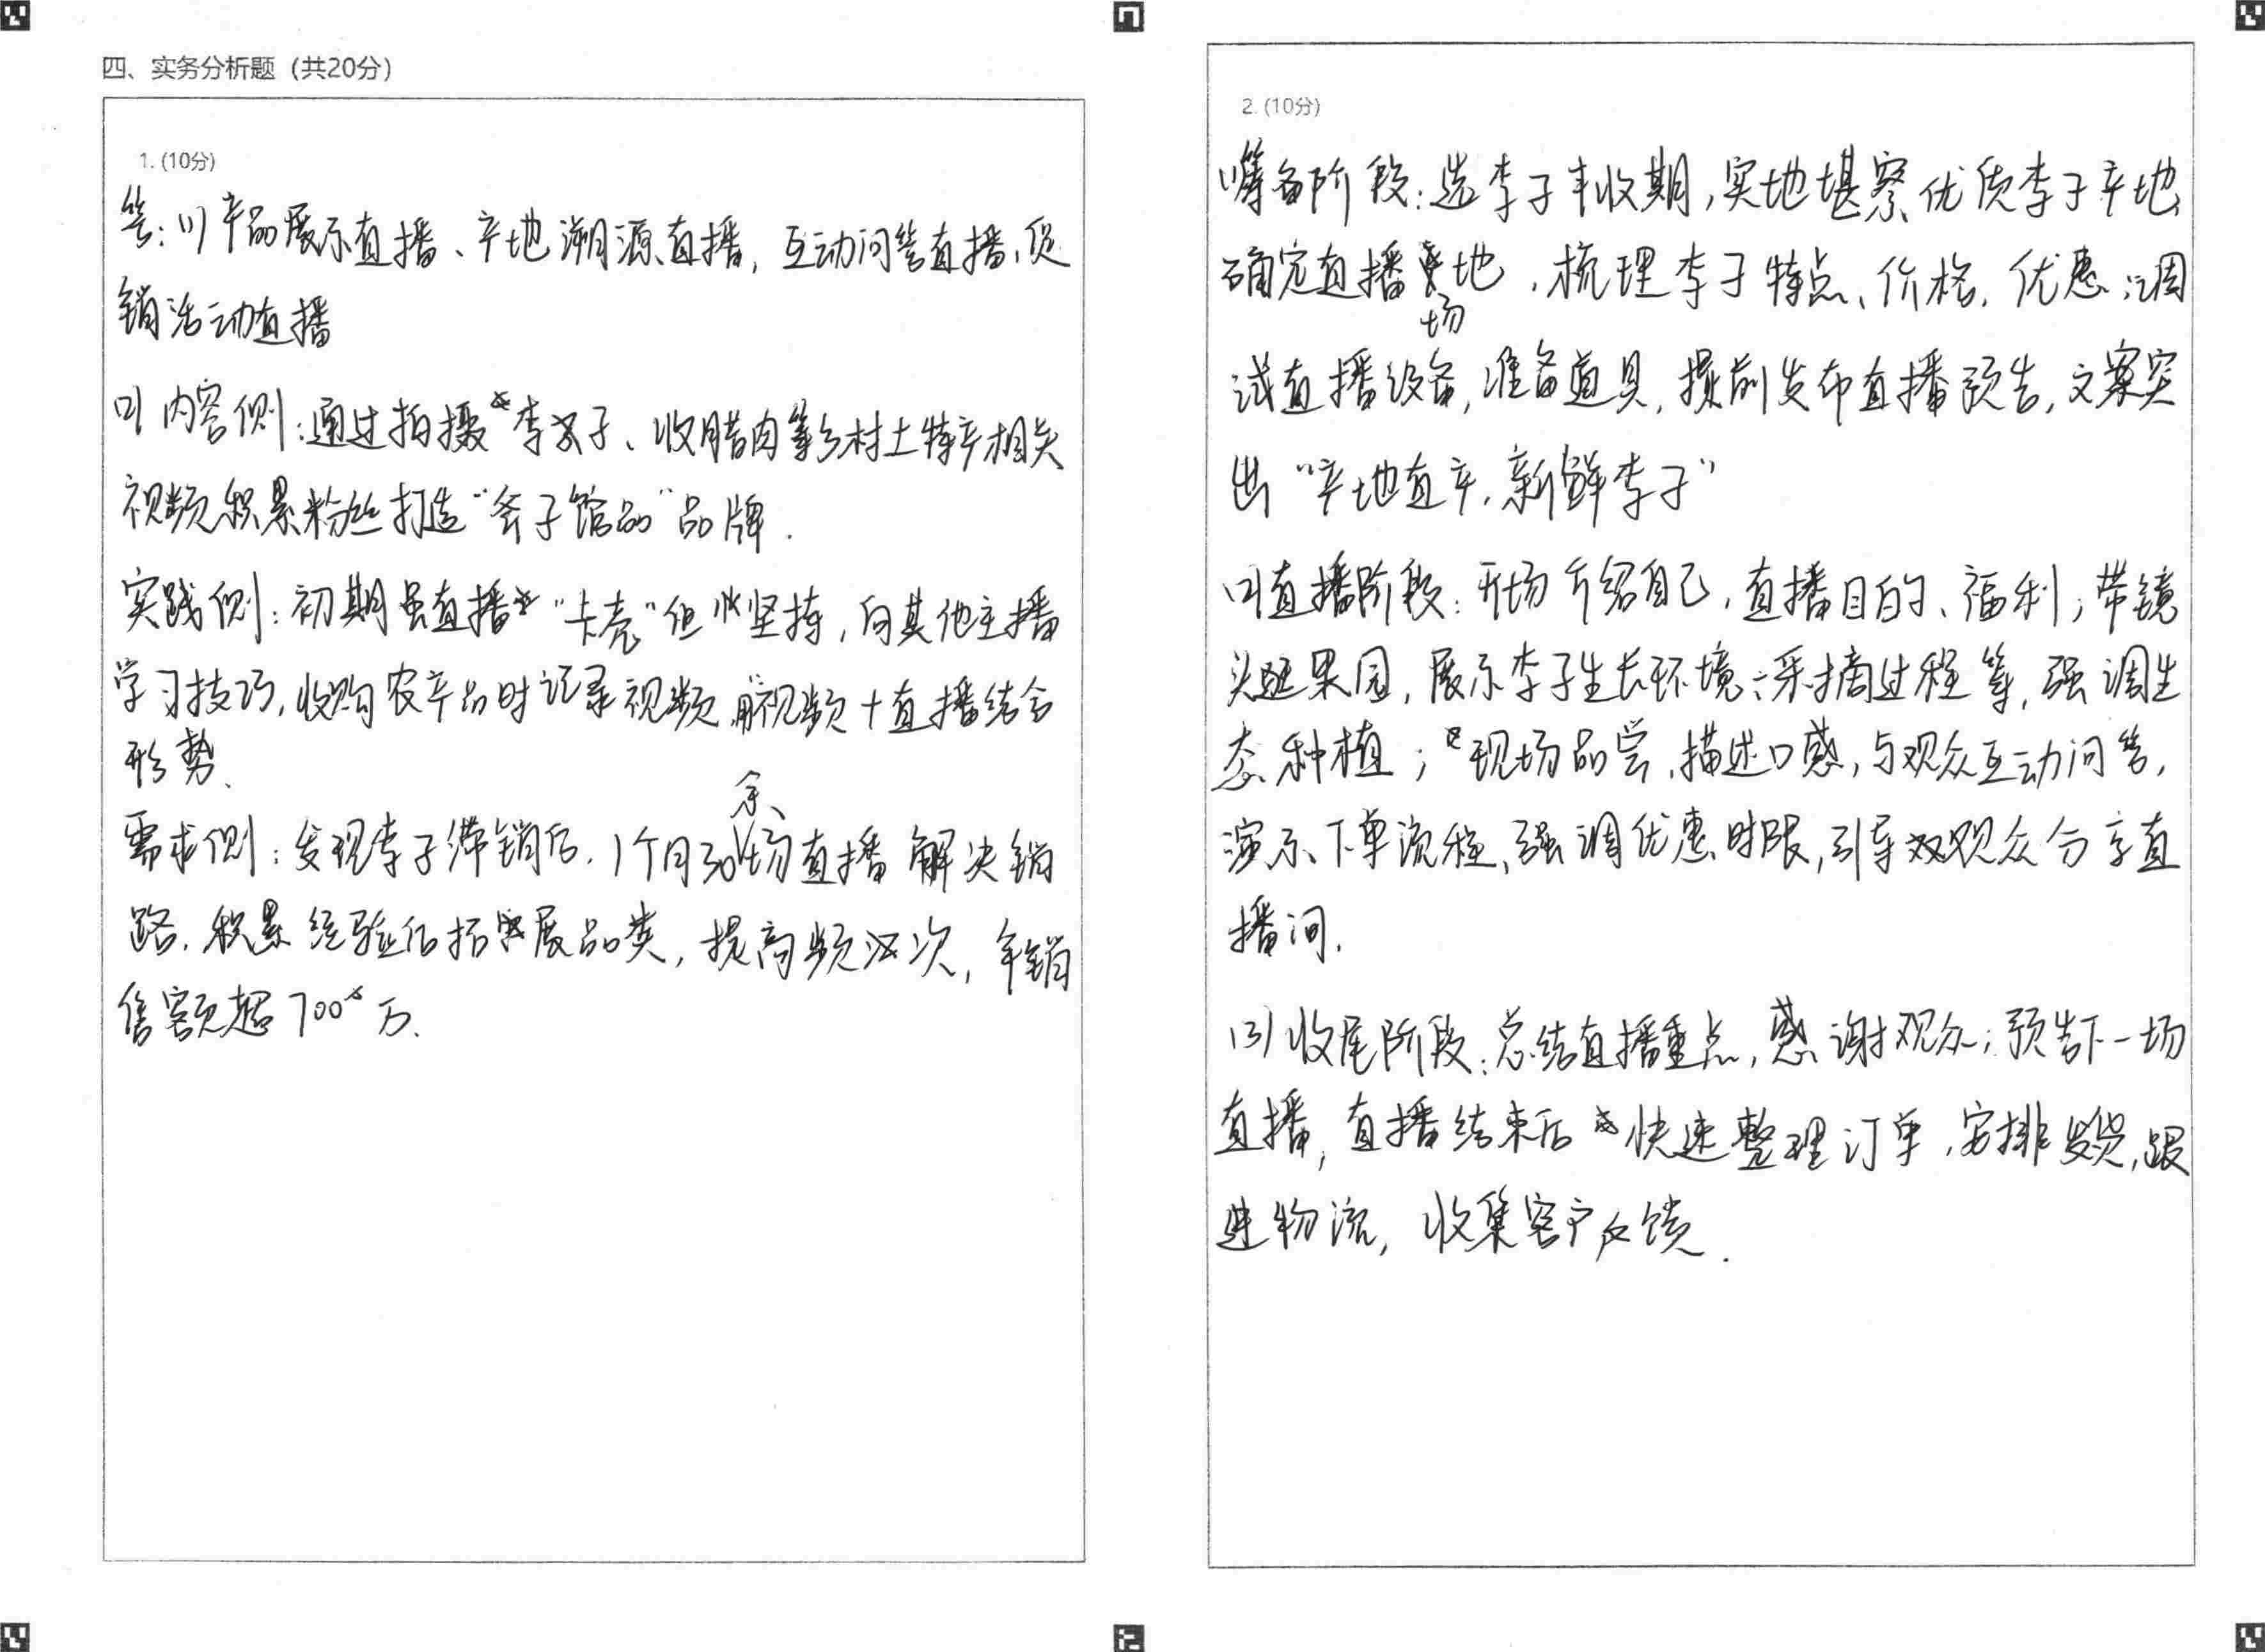 四、实务分析题（共20分）
1. (10分)
答：(1)产品展示直播、产地溯源直播，互动问答直播，促
销活动直播
(2)内容侧：通过拍摄李子、收腊肉等乡村土特产相关
视频积累粉丝打造"爷子馆品"品牌.
实践侧：初期虽直播"卡壳"但坚持，向其他主播
学习技巧，收购农产品时记录视频，用视频+直播结合
形势、
需求侧：发现李子滞销后，1个月30余场直播解决销
路，积累经验后拓展品类，提高频次，年销
售额超700万.
2. (10分)
(1)筹备阶段：选李子丰收期，实地堪察优质李子产地
确定直播场地，梳理李子特点、价格，优惠；调
试直播设备，准备道具，提前发布直播预告，文案突
出"产地直产，新鲜李子"
(2)直播阶段：开场介绍自己，直播目的、福利；带镜
头逛果园，展示李子生长环境；采摘过程等，强调生
态种植；现场品尝，描述口感，与观众互动问答，
演示下单流程，强调优惠时限，引导观众分享直
播间.
(3)收尾阶段：总结直播重点，感谢观众；预告下一场
直播，直播结束后快速整理订单，安排发货，跟
进物流，收集客户反馈.